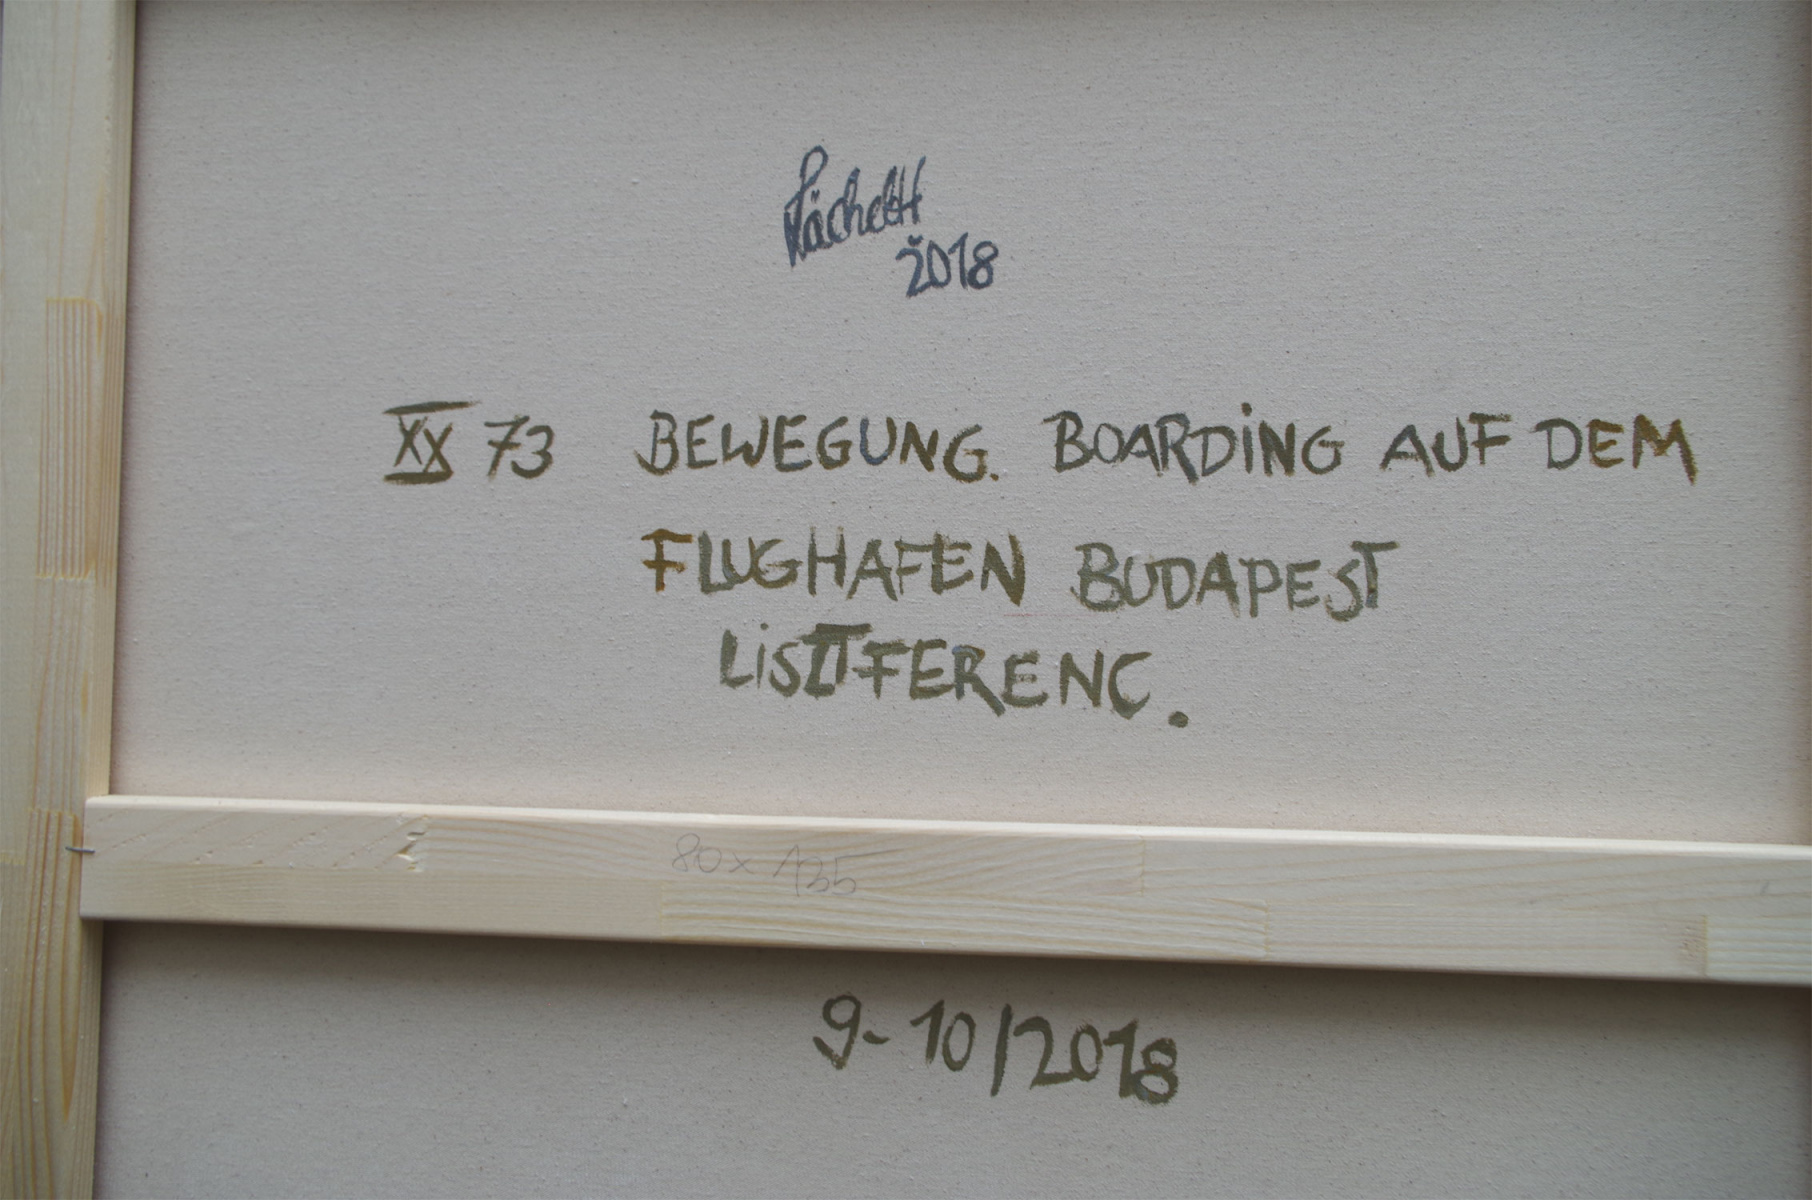 2018
XX 73 BEWEGUNG. BOARDING AUF DEM
FLUGHAFEN BUDAPEST
LISTTFERENC.
80 x 135
9-10/2018